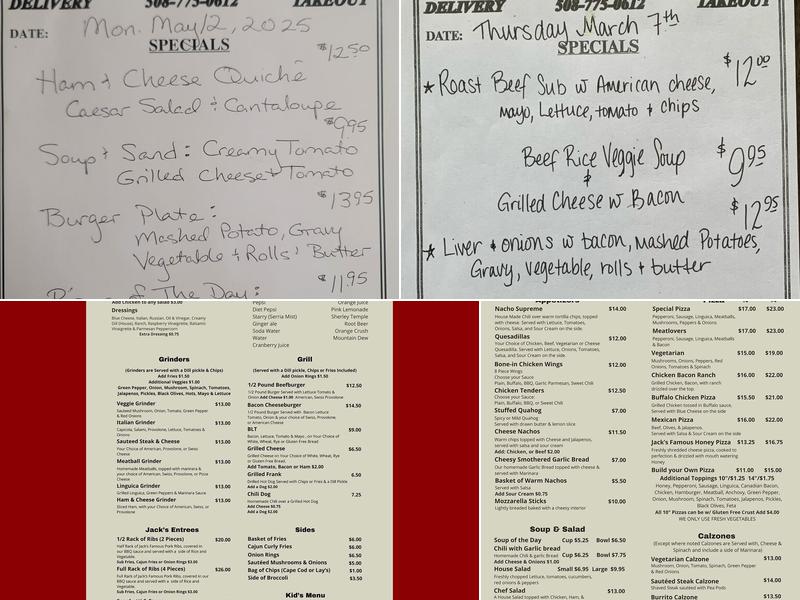 DELIVERY 508-775-0612 TAKEOUT
DATE: Mon. May 12, 2025
SPECIALS
$12.50
Ham & Cheese Quiche
Caesar Salad & Cantaloupe
$9.95
Soup & Sand: Creamy Tomato
Grilled Cheese & Tomato
$13.95
Burger Plate:
Mashed Potato, Gravy
Vegetable & Rolls & Butter
$11.95
Of The Day:
DELIVERY 508-775-0612 TAKEOUT
DATE: Thursday March 7th
SPECIALS
$12.00
* Roast Beef Sub w American cheese,
mayo, Lettuce, tomato & chips
Beef Rice Veggie Soup $9.95
&
Grilled Cheese w Bacon
$12.95
* Liver & onions w bacon, mashed Potatoes,
Gravy, vegetable, rolls & butter
Add Chicken to any salad $3.00
Dressings
Blue Cheese, Italian, Russian, Oil & Vinegar, Creamy
Dill (House), Ranch, Raspberry Vinaigrette, Balsamic
Vinaigrette & Parmesan Peppercorn
Extra Dressing $0.75
Pepsi
Diet Pepsi
Starry (Serria Mist)
Ginger ale
Soda Water
Water
Cranberry Juice
Orange Juice
Pink Lemonade
Sherley Temple
Root Beer
Orange Crush
Mountain Dew
Grinders
(Grinders are Served with a Dill pickle & Chips)
Add Fries $1.50
Additional Veggies $1.00
Green Pepper, Onion, Mushroom, Spinach, Tomatoes,
Jalapenos, Pickles, Black Olives, Hots, Mayo & Lettuce
Veggie Grinder $13.00
Sauteed Mushrooms, Onion, Tomato, Green Pepper
& Red Onions
Italian Grinder $13.00
Capricola, Salami, Provolone, Lettuce, Tomatoes &
Onions
Sauteed Steak & Cheese $13.00
Your Choice of American, Provolone, Swiss
Cheese
Meatball Grinder $13.00
Homemade Meatballs, topped with marinara &
your choice of American, Swiss, Provolone, or Pizza
Cheese
Linguica Grinder $13.00
Grilled Linguica, Green Peppers & Marinara Sauce
Ham & Cheese Grinder $13.00
Sliced Ham, with your Choice of American, Swiss, or
Provolone
Jack's Entrees
1/2 Rack of Ribs (2 Pieces) $20.00
Half Rack of Jack's Famous Pork Ribs, covered in
our BBQ sauce and served with a side of Rice and
Vegetable.
Sub Fries, Cajun Fries or Onions Rings $3.00
Full Rack of Ribs (4 Pieces) $26.00
Full Rack of Jack's Famous Pork Ribs, covered in
our BBQ sauce and served with a side of Rice and
Vegetable.
Sub Fries, Cajun Fries or Onion Rings $3.00
Grill
(Served with a Dill Pickle, Chips or Fries Included)
Add Onion Rings $1.50
1/2 Pound Beefburger $12.50
1/2 Pound Burger Served with Lettuce Tomato &
Onion Add Cheese $1.00 American, Swiss, Provolone
Bacon Cheeseburger $14.50
1/2 Pound Burger Served with Bacon Lettuce
Tomato, Onion & your choice of Swiss, Provolone,
or American Cheese
BLT $9.00
Bacon, Lettuce, Tomato & Mayo, on Your Choice of
White, Wheat, Rye or Gluten Free Bread.
Grilled Cheese $6.50
Grilled Cheese on Your Choice Of White, Wheat, Rye
or Gluten Free Bread.
Add Tomato, Bacon or Ham $2.00
Grilled Frank 6.50
Grilled Hot Dog Served with Chips or Fries & a Dill Pickle
Add a Dog $2.00
Chili Dog 7.25
Homemade Chili over a Grilled Hot Dog
Add Cheese $0.75
Add a Dog $2.00
Sides
Basket of Fries $6.00
Cajun Curly Fries $6.00
Onion Rings $6.50
Sautéed Mushrooms & Onions $5.00
Bag of Chips (Cape Cod or Lay's) $1.00
Side of Broccoli $3.50
Kid's Menu
Appetizers
Nacho Supreme $14.00
House Made Chili over warm tortilla chips, topped
with cheese. Served with Lettuce, Tomatoes,
Onions, Salsa, and Sour Cream on the side.
Quesadillas $12.00
Your Choice of Chicken, Beef, Vegetable or Cheese
Quesadilla. Served with Lettuce, Tomatoes, Onions,
Salsa, and Sour Cream on the side.
Bone-in Chicken Wings $12.00
8 Piece Wings
Choose your Sauce
Plain, Buffalo, BBQ, Garlic Parmesan, Sweet Chili
Chicken Tenders $12.50
Choose your Sauce:
Plain, Buffalo, BBQ, or Sweet Chili
Stuffed Quahog $7.00
Spicy or Mild Quahog
Served with drawn butter & lemon slice
Cheese Nachos $11.50
Warm chips topped with Cheese and jalapenos,
served with salsa and sour cream
Add: Chicken, or Beef $2.00
Cheesy Smothered Garlic Bread $7.00
Our homemade Garlic bread topped with cheese &
served with Marinara
Basket of Warm Nachos $5.50
Served with Salsa
Add Sour Cream $0.75
Mozzarella Sticks $10.00
Lightly breaded cheese with a cheesy interior
Soup & Salad
Soup of the Day Cup $5.25 Bowl $6.50
Chili with Garlic bread
Homemade Chili & garlic Bread Cup $6.25 Bowl $7.75
Add Cheese & Onions $1.00
House Salad Small $6.95 Large $9.95
Freshly chopped Lettuce, tomatoes, cucumbers,
red onions & peppers
Chef Salad $13.00
A House Salad topped with Chicken, Ham, &
Pizza
Special Pizza $17.00 $23.00
Pepperoni, Sausage, Linguica, Meatballs,
Mushrooms, Peppers & Onions
Meatlovers $17.00 $23.00
Pepperoni, Sausage, Linguica, Meatballs
& Bacon
Vegetarian $15.00 $19.00
Mushrooms, Onions, Peppers, Red
Onions, Tomatoes & Spinach
Chicken Bacon Ranch $16.00 $22.00
Grilled Chicken, Bacon, with ranch
drizzled over the top.
Buffalo Chicken Pizza $15.50 $21.00
Grilled Chicken tossed in Buffalo sauce,
Served with Blue Cheese on the side
Mexican Pizza $16.00 $22.00
Beef, Olives, & Jalapenos.
Served with Salsa & Sour Cream on the side
Jack's Famous Honey Pizza $13.25 $16.75
Freshly shredded cheese pizza, cooked to
perfection & drizzled with mouth watering
Honey
Build your Own Pizza $11.00 $15.00
Additional Toppings 10"/$1.25 14"/$1.75
Honey, Pepperoni, Sausage, Linguica, Canadian Bacon,
Chicken, Hamburger, Meatball, Anchovy, Green Pepper,
Onion, Mushroom, Spinach, Tomatoes, Jalapenos, Pickles,
Black Olives, Feta
All 10" Pizzas can be w/ Gluten Free Crust Add $4.00
WE ONLY USE FRESH VEGETABLES
Calzones
(Except where noted Calzones are Served with, Cheese &
Spinach and include a side of Marinara)
Vegetarian Calzone $13.00
Mushroom, Onion, Tomato, Spinach, Green Pepper
& Red Onion
Sautéed Steak Calzone $14.00
Shaved Steak sautéed with Pea Pods
Burrito Calzone $13.50